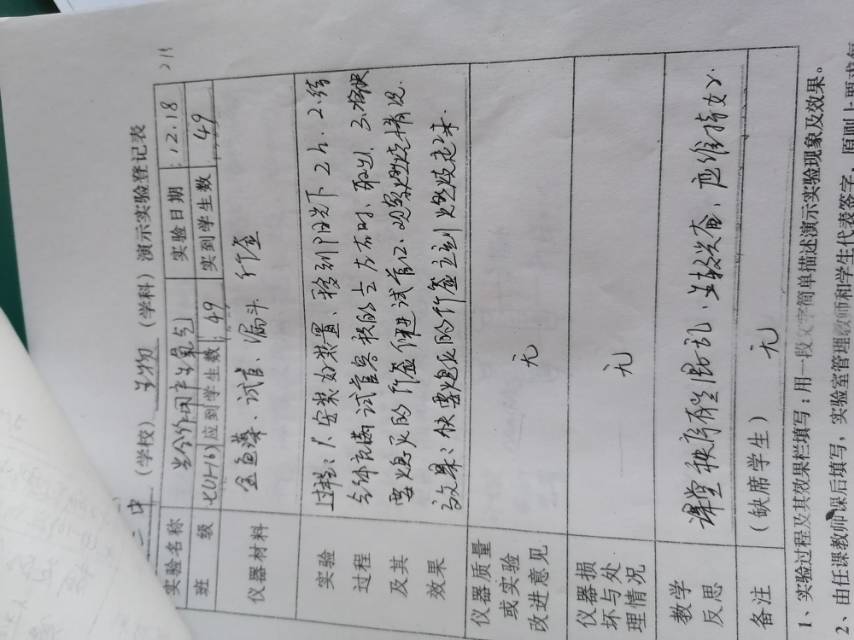 二中（学校）生物（学科）演示实验登记表
实验名称 光合作用产生氧气 实验日期 12.18
班 级 七(1-16) 应到学生数 49 实到学生数 49
仪器材料 金鱼藻、试管、漏斗 竹签
实验过程及其效果
过程：1.安装好装置、移到阳光下2h. 2.待
气体充满试管容积的 左右时、取出. 3.将快
要熄灭的竹签伸进试管口、观察燃烧情况.
效果：快要熄灭的竹签立刻燃烧起来.
仪器质量或实验改进意见 无
仪器损坏与处理情况 无
教学反思 课堂秩序有些混乱. 兴奋，应维持
备注 （缺席学生） 无
1、实验过程及其效果栏填写：用一段文字简单描述演示实验现象及效果。
2、由任课教师课后填写，实验室管理教师和学生代表签字，原则上要求每